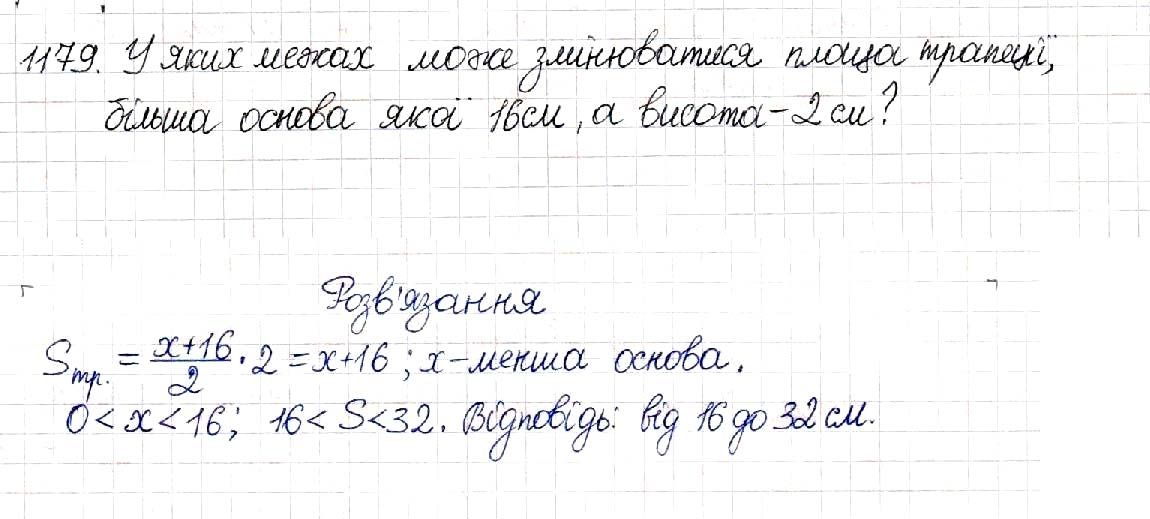 1179. У яких межах може змінюватися площа трапеції,
більша основа якої 16см, а висота - 2 см?
Розв'язання
Sтр. = x+16/2 · 2 = x+16 ; x - менша основа.
0 < x < 16; 16 < S < 32. Відповідь: від 16 до 32 см.